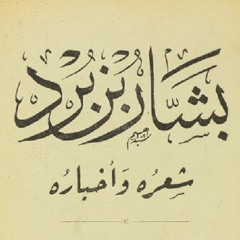 بَشَّار بْن بُرْد
شعره وَأخباره